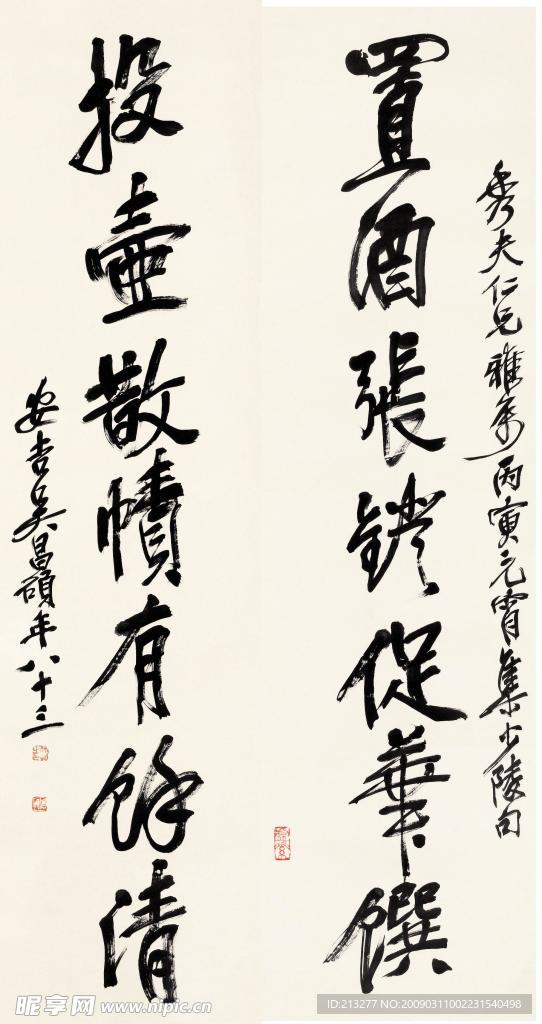 秀夫仁兄雅属丙寅元宵集少陵句
置酒張鐙促華饌
投壺散幘有餘清
安吉吳昌碩年八十三
昵享网 www.nipic.cn
ID:213277 NO:20090311002231540498